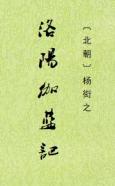 〔北朝〕杨衒之
洛陽伽藍記